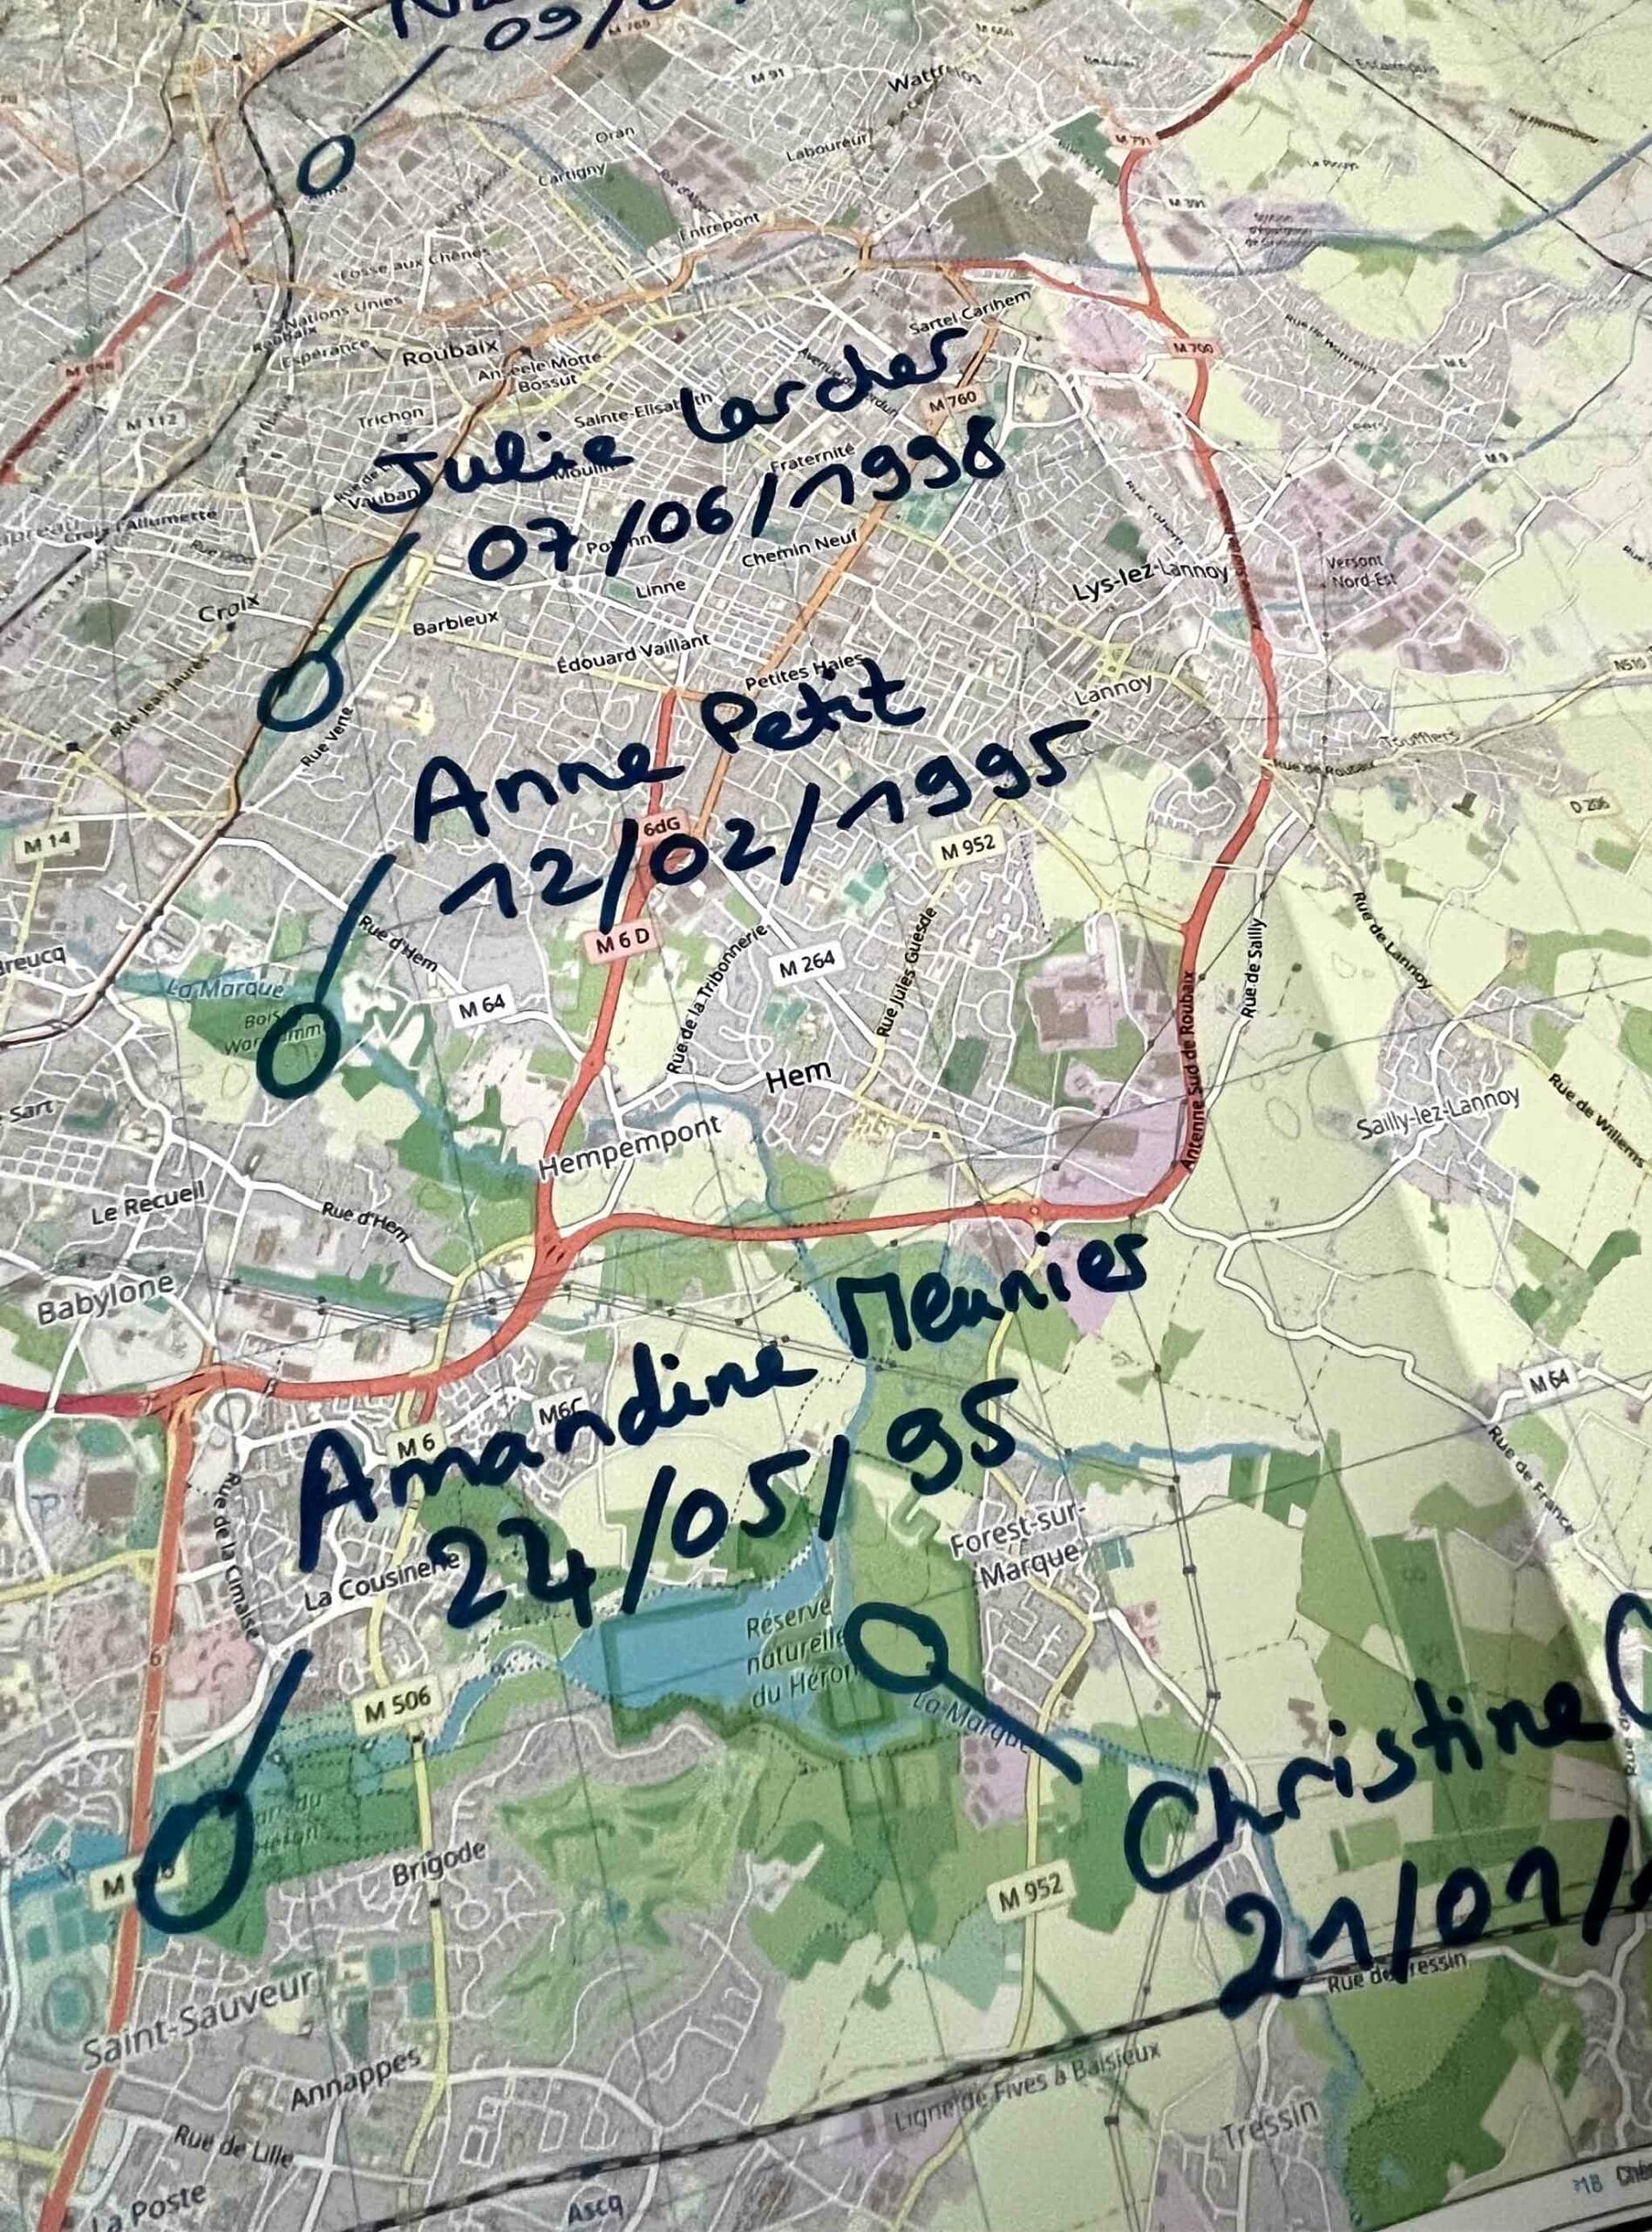 09/0
M 91
Wattrelos
Oran
Cartigny
Laboureur
M 771
M 391
Entrepont
Fosse aux Chênes
Nations Unies
Roubaix
Espérance
Roubaix
Anseele Motte-
Bossut
Sartel Carihem
M 700
M 112
Trichon
Sainte-Elisabeth
M 760
Julie Larcher
07/06/1998
Fraternité
Vauban
Moulin
Chemin Neuf
Linne
Lys-lez-Lannoy
Versont
Nord-Est
Croix
Barbieux
Édouard Vaillant
Petites Haies
Lannoy
Rue Jean Jaurès
Rue Verte
Toufflers
Rue de Roubaix
Anne Petit
12/02/1995
6dG
M 14
M 952
D 206
Breucq
Rue d'Hem
M 6 D
Rue de la Tribonnerie
M 264
Rue Jules Guesde
Rue de Sailly
Rue de Lannoy
La Marque
M 64
Antenne Sud de Roubaix
Hem
Sart
Hempempont
Sailly-lez-Lannoy
Rue de Willems
Le Recueil
Rue d'Hem
Babylone
Amandine Meunier
24/05/95
M 64
M6C
M 6
Rue de France
Rue de la Cimaise
La Cousinerie
Forest-sur-
Marque
Réserve
naturelle
du Héron
La Marque
M 506
Christine
21/01/
Brigode
M 952
Rue de Tressin
Saint-Sauveur
Annappes
Ligne de Fives à Baisieux
Tressin
Rue de Lille
La Poste
Ascq